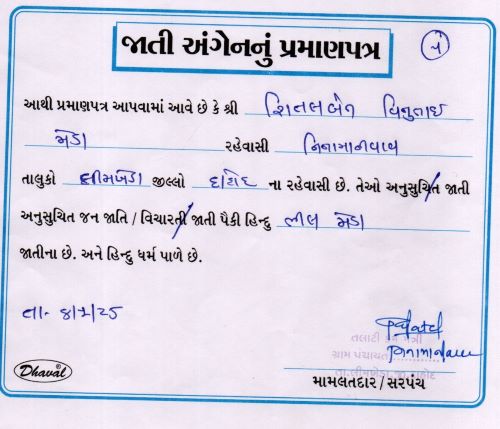 જાતી અંગેનનું પ્રમાણપત્ર
૧
આથી પ્રમાણપત્ર આપવામાં આવે છે કે શ્રી શિતલબેન વિનુભાઇ
મેડા રહેવાસી નિનામાનાવાવ
તાલુકો લીમખેડા જીલ્લો દાહોદ ના રહેવાસી છે. તેઓ અનુસુચિત જાતી
અનુસુચિત જન જાતિ / વિચારતી જાતી પૈકી હિન્દુ ભીલ મેડા
જાતીના છે. અને હિન્દુ ધર્મ પાળે છે.
તા- ૪/૨/25
તલાટી કમ મંત્રી
ગ્રામ પંચાયત
Dhaval
મામલતદાર / સરપંચ